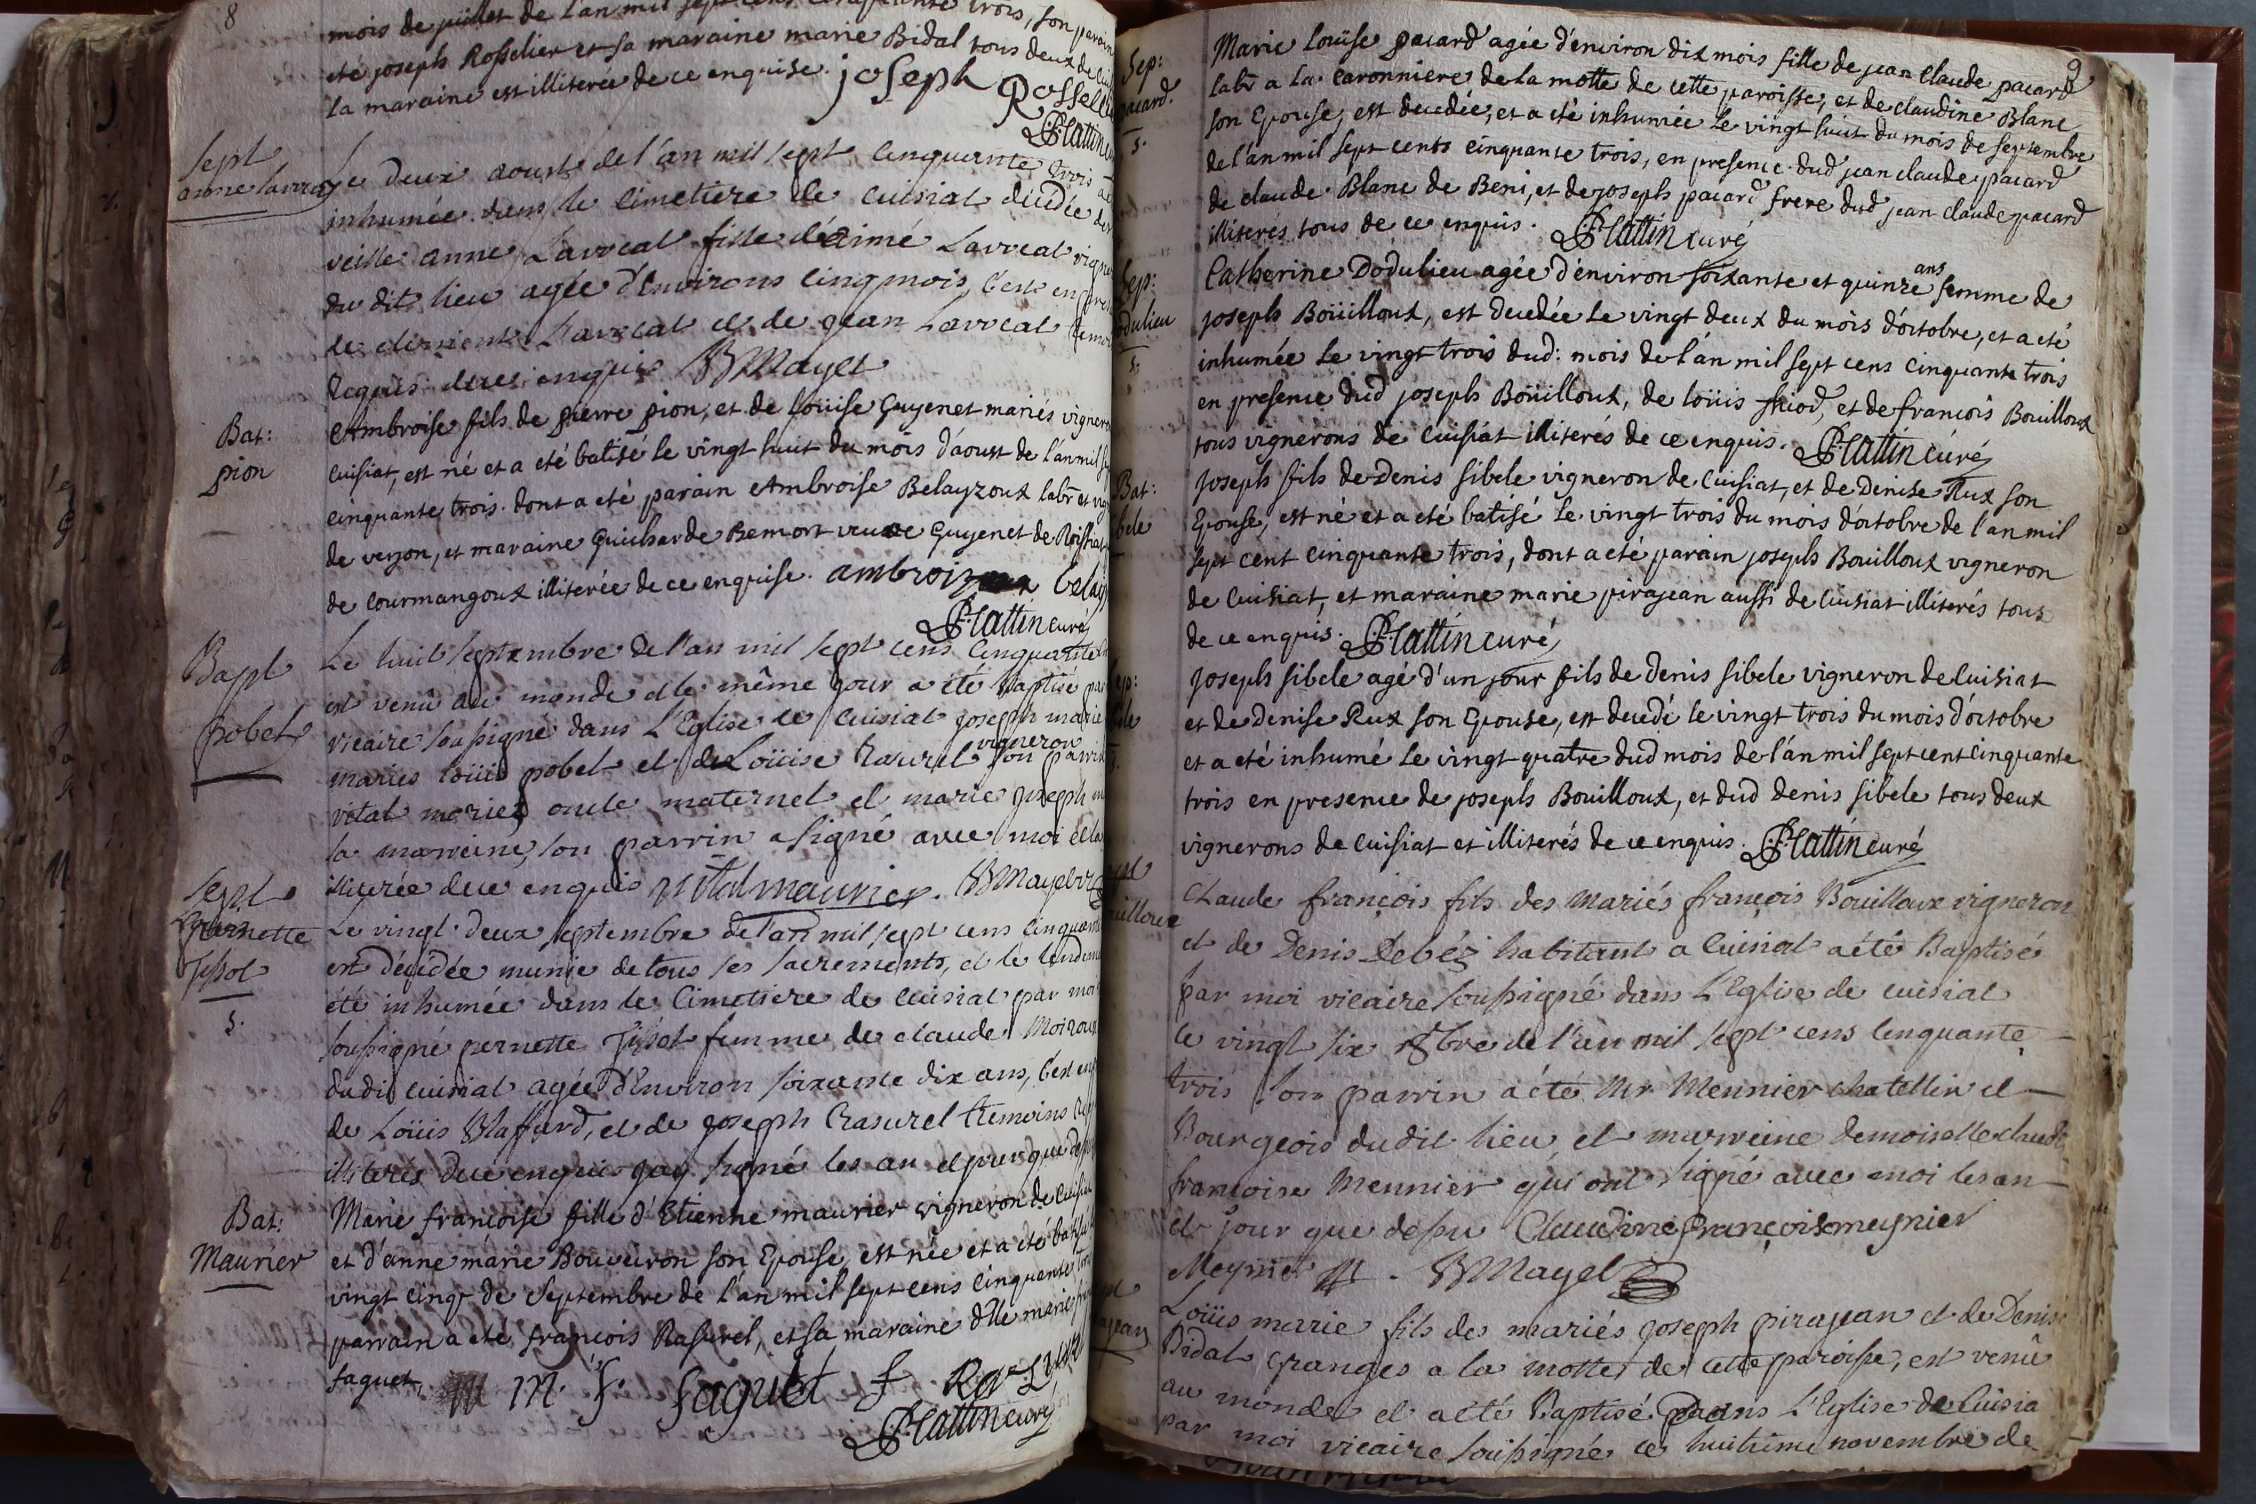 8
mois de juillet de l'an mil sept cens cinquante trois, son parain
eté joseph Rosselier et sa maraine marie Bidal tous deux de cuis
la maraine est illiterée de ce enquise. joseph Rossel
P: Cattin
Sept
anne lavocat
Le deux aoust de l'an mil sept cinquante trois a
inhumée dans le cimetiere de cuisiat decedée
veille anne Lavocat fille d'aimé Lavocat vign
du dit lieu agée d'Environs cinq mois, c'est en
de climent Lavocat et de jean Lavocat
Requis de ce enquis BMayet
Bat:
pion
Ambroise fils de pierre pion, et de Loüise Guyenet mariés vigner
Cuisiat, est né et a eté batisé le vingt huit du mois d'aoust de l'an mil
cinquante trois. dont a eté parain Ambroise Belayzoux labr et vig
de verjon, et maraine Guicharde Remort veuve Guyenet de Roissiat
de courmangoux illiterée de ce enquise. ambroiz belay
P: Cattin curé
Bapt
pobel
Le huit septembre de l'an mil sept cens cinquante
est venû au monde et le même jour a été baptisé par
vicaire soussigné dans L'Eglise de cuisiat joseph marie
maries loüis pobel et de Loüise Rasurel vigneron son parrin
vital moriez oncle maternel et marie joseph
la marreine, son parrin a signé avec moi et la
illiterée de ce enquis vital maurier. BMayet
Sept
pernette
Tissot
5.
Le vingt deux septembre de l'an mil sept cens cinquan
est décédée munie de tous ses sacrements, et le lendem
été inhumée dans le Cimetiere de cuisiat par moi
soussigné pernette Tissot femme de claude Moiroux
dudit cuisiat agée d'Environ soixante dix ans, c'est en
de Loüis Blaffard, et de joseph Rasurel temoins
illiterés de ce enquis jay signé les an et jour que dess
Bat:
Maurier
Marie francoise fille d'Etienne maurier vigneron de Cuisiat
et d'anne marie Bouveiron son Epouse, est née et a eté batisée
vingt cinq de Septembre de l'an mil sept cens cinquante tro
parrain a eté francois Rasurel, et sa maraine dlle marie fr
faguet. M. f. faguet f Rasurel
P: Cattin curé
9
Sep:
pacard.
5.
Marie Loüise pacard agée d'environ dix mois fille de jean Claude pacard
labr a la caronniere de la motte de cette paroisse, et de claudine Blanc
son Epouse, est decedée, et a eté inhumée le vingt huit du mois de septembre
de l'an mil sept cents cinquante trois, en presence dud jean claude pacard
de claude Blanc de Beni, et de joseph pacard frere dud jean claude pacard
illiterés tous de ce enquis. P: Cattin curé
Sep:
dulieu
5.
Catherine Dodulieu agée d'environ soixante et quinze ans femme de
joseph Boüilloux, est decedée le vingt deux du mois d'octobre, et a eté
inhumée le vingt trois dud: mois de l'an mil sept cens cinquante trois
en presence dud joseph Boüilloux, de loüis et de francois Bouilloux
tous vignerons de cuisiat illiterés de ce enquis. P: Cattin curé
Bat:
bele
Joseph fils de Denis sibele vigneron de Cuisiat, et de Denise Rux son
Epouse, est né et a eté batisé le vingt trois du mois d'octobre de l'an mil
sept cent cinquante trois, dont a eté parain joseph Bouilloux vigneron
de Cuisiat, et maraine marie pirajean aussi de cuisiat illiterés tous
de ce enquis. P: Cattin curé
ep:
bele
Joseph sibele agé d'un jour fils de Denis sibele vigneron de Cuisiat
et de Denise Rux son Epouse, est decedé le vingt trois du mois d'octobre
et a eté inhumé le vingt quatre dud mois de l'an mil sept cent cinquante
trois en presence de joseph Bouilloux, et dud Denis sibele tous deux
vignerons de Cuisiat et illiterés de ce enquis. P: Cattin curé
pt
uilloux
Claude françois fils des mariés françois Bouilloux vigneron
et de Denis Debéz habitants a Cuisiat a été Baptisé
par moi vicaire soussigné dans L'Eglise de cuisiat
le vingt six 8bre de l'an mil sept cens cinquante
trois son parrin a été Mr Mennier chatellin et
Bourgeois dudit lieu, et marreine demoiselle claud
francoise Mennier qui ont signé avec moi les an
et jour que dessu Claudine françoise meynier
Meynier. BMayet
ajean
Loüis marie fils des mariés joseph pirajean et de Denise
Bidal Granges a la motte de cette paroisse, est venû
au monde et a été Baptisé dans L'Eglise de Cuisia
par moi vicaire soussigné ce huitieme novembre de